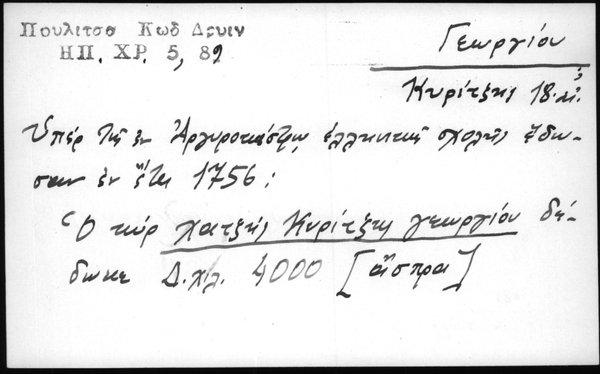 Πουλιτσα Κωδ Δρυιν
ΗΠ. ΧΡ. 5, 82
Γεωργίου
Κυρίτζης 18. αἰ.
Ὑπὲρ τῆς ἐν Ἀργυροκάστρῳ ἑλληνικῆς σχολῆς ἔδω-
σαν ἐν ἔτει 1756:
Ὁ κὺρ χατζῆς Κυρίτζης γεωργίου δέ-
δωκε Δ. χλ. 4000 [ἄσπρα]